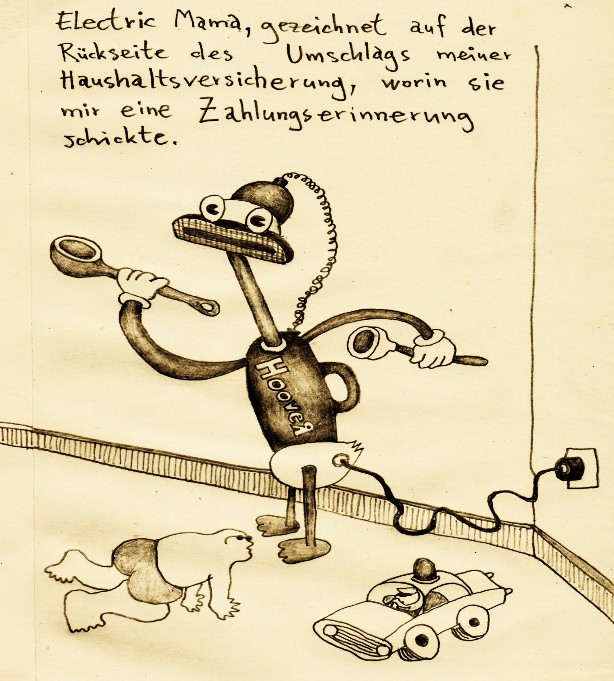 Electric Mama, gezeichnet auf der
Rückseite des Umschlags meiner
Haushaltsversicherung, worin sie
mir eine Zahlungserinnerung
schickte.
Hoover